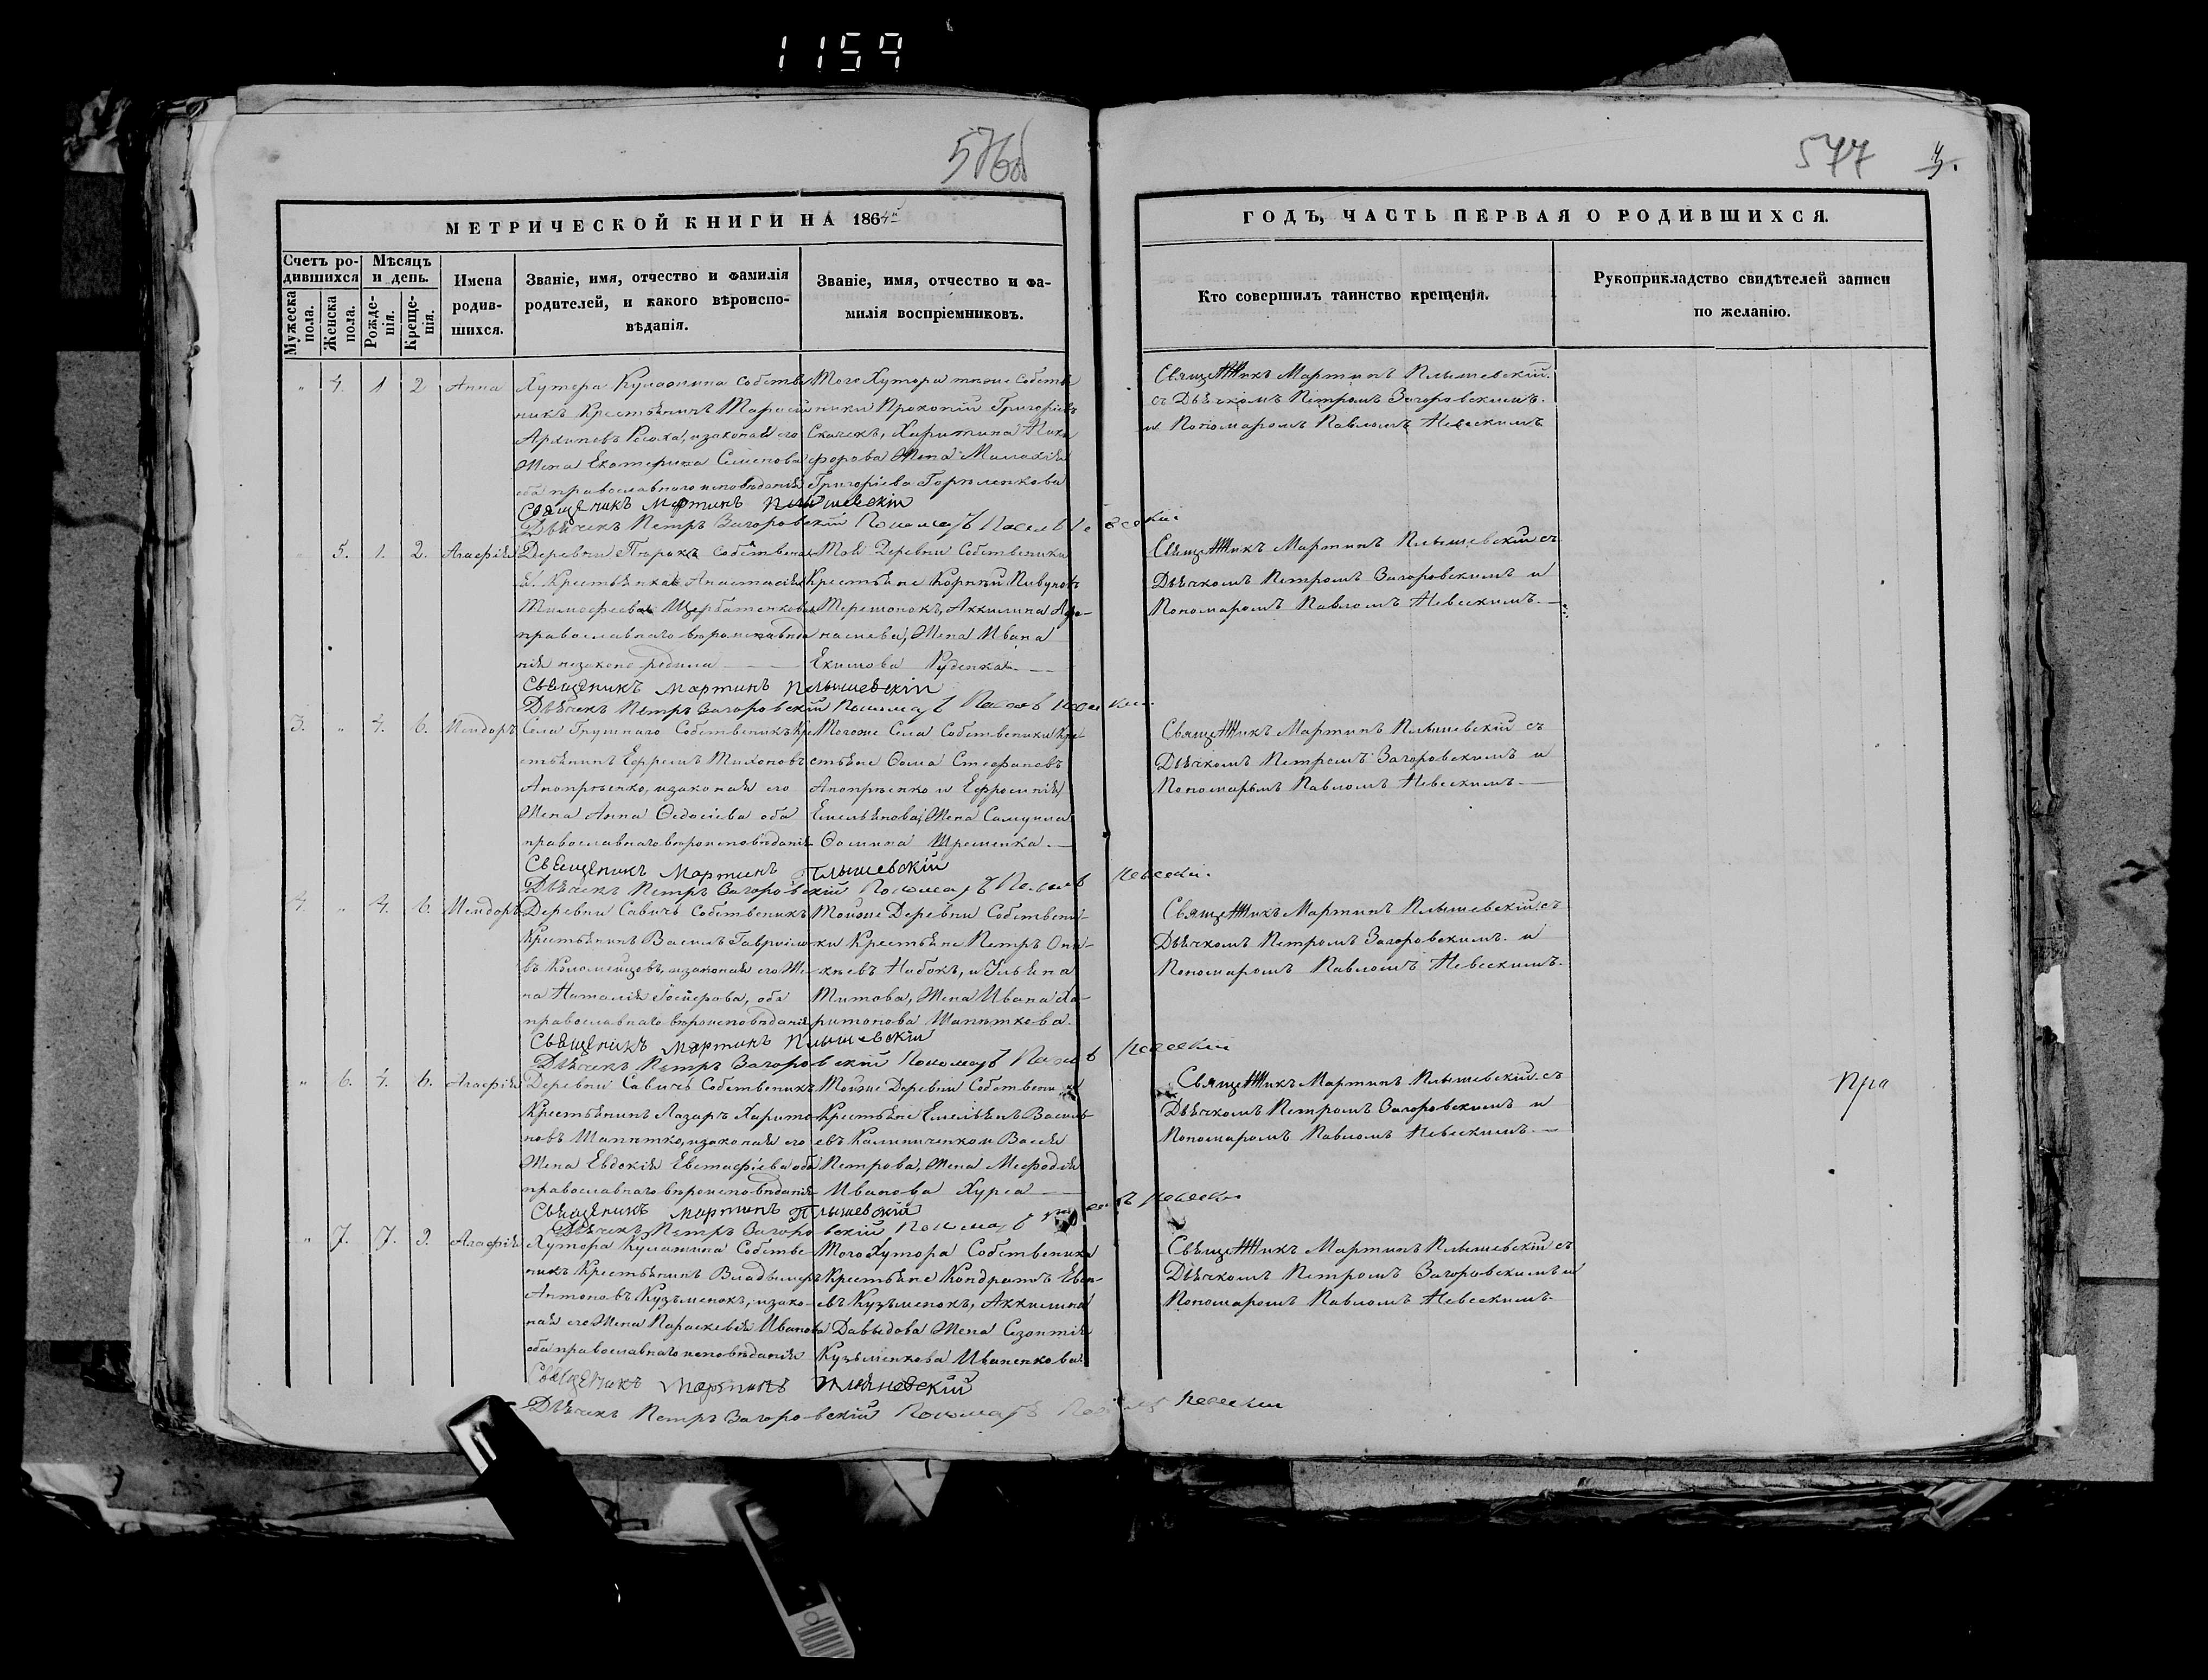 1159
576об
577
МЕТРИЧЕСКОЙ КНИГИ НА 1864й
ГОДЪ, ЧАСТЬ ПЕРВАЯ О РОДИВШИХСЯ.
Счетъ ро-
дившихся
Мужеска
пола.
Женска
пола.
Мѣсяцъ
и день.
Рожде-
нія.
Креще-
нія.
Имена
родив-
шихся.
Званіе, имя, отчество и фамилія
родителей, и какого вѣроиспо-
вѣданія.
Званіе, имя, отчество и фа-
милія воспріемниковъ.
Кто совершилъ таинство крещенія.
Рукоприкладство свидѣтелей записи
по желанію.
" 4. 1 2 Анна
Хутора собствен
никъ Крестьянинъ
Архиповъ изаконая его
Жена Екатерина Семенова
оба православнаго исповѣданія
Того Хутора тоже Собстве
ники Прокопій Григоріевъ
Харитина Ники
форова Жена Малахія
Григоріева
Священикъ Мартинъ Плышевскій
съ Дьячкомъ Петромъ Загоровскимъ
и Пономаромъ Павломъ Невескимъ
Священикъ Мартинъ Плышевскій
Дьячекъ Петръ Загоровскій Пономарь Павелъ
5. 1. 2. Агафія
Деревни собствена
я Крестьянка Анастасія
Тимофеева Щербатенкова
православнаго вѣроисповѣда
нія незаконо родила
Той Деревни Собственики
Крестьяне Корній
Акилина Афа-
насиева, Жена Ивана
Екимова Руденка
Священикъ Мартинъ Плышевскій съ
Дьячкомъ Петромъ Загоровскимъ и
Пономаромъ Павломъ Невескимъ
Священикъ Мартинъ Плышевскій
Дьячекъ Петръ Загоровскій Пономарь Павелъ
3. " 4. 6. Исидоръ
Села Грушнаго Собственикъ Кре
стьянинъ Ефремъ Тихоновъ
Анопрѣенко, изаконая его
Жена Анна Федосіева оба
православнаго вѣроисповѣданія
Тогоже Села Собственики Кре-
стьяне Фома Стефановъ
Анопрѣенко и Ефросинія
Емельянова, Жена Самуила
Фомина
Священикъ Мартинъ Плышевскій съ
Дьячкомъ Петромъ Загоровскимъ и
Пономарымъ Павломъ Невескимъ
Священикъ Мартинъ Плышевскій
Дьячекъ Петръ Загоровскій Пономарь Павелъ Невескій
4. " 4. 6. Исидоръ
Деревни Савичъ Собственикъ
Крестьянинъ Василъ Гавриіло
въ Коломейцовъ, изаконая его Же-
на Наталія оба
православнаго вѣроисповѣданія
Тойже Деревни Собствени-
ки Крестьяне Петръ Они-
кѣевъ Набокъ, и Ульяна
Титова, Жена Ивана Ха-
ритонова Шапяткова
Священикъ Мартинъ Плышевскій съ
Дьячкомъ Петромъ Загоровскимъ и
Пономаромъ Павломъ Невескимъ
Священикъ Мартинъ Плышевскій
Дьячекъ Петръ Загоровскій Пономарь Павелъ Невескій
" 6. 4. 6. Агафія
Деревни Савичъ Собственикъ
Крестьянинъ Лазарь Харито
новъ Шапятко, изаконая его
Жена Евдокія Евстафіева оба
православнаго вѣроисповѣданія
Тойже Деревни Собствени
Крестьяне Емельянъ Василь-
евъ Калиниченко и Васса
Петрова, Жена Мефодія
Иванова Хурса
Священикъ Мартинъ Плышевскій съ
Дьячкомъ Петромъ Загоровскимъ и
Пономаромъ Павломъ Невескимъ
Пра
Священикъ Мартинъ Плышевскій
Дьячекъ Петръ Загоровскій Пономарь
" 7. 7. 9. Агафія
Хутора Собстве
никъ Крестьянинъ Владымеръ
Антоновъ Кузьменокъ, изако-
ная его Жена Параскевія Иванова
оба православнаго исповѣданія
Того Хутора Собственики
Крестьяне Кондратъ
евъ Кузьменокъ, Акилина
Давыдова Жена
Кузьменкова Иваненкова
Священикъ Мартинъ Плышевскій съ
Дьячкомъ Петромъ Загоровскимъ и
Пономаромъ Павломъ Невескимъ
Священикъ Мартинъ Плышевскій
Дьячекъ Петръ Загоровскій Пономарь Павелъ Невескій